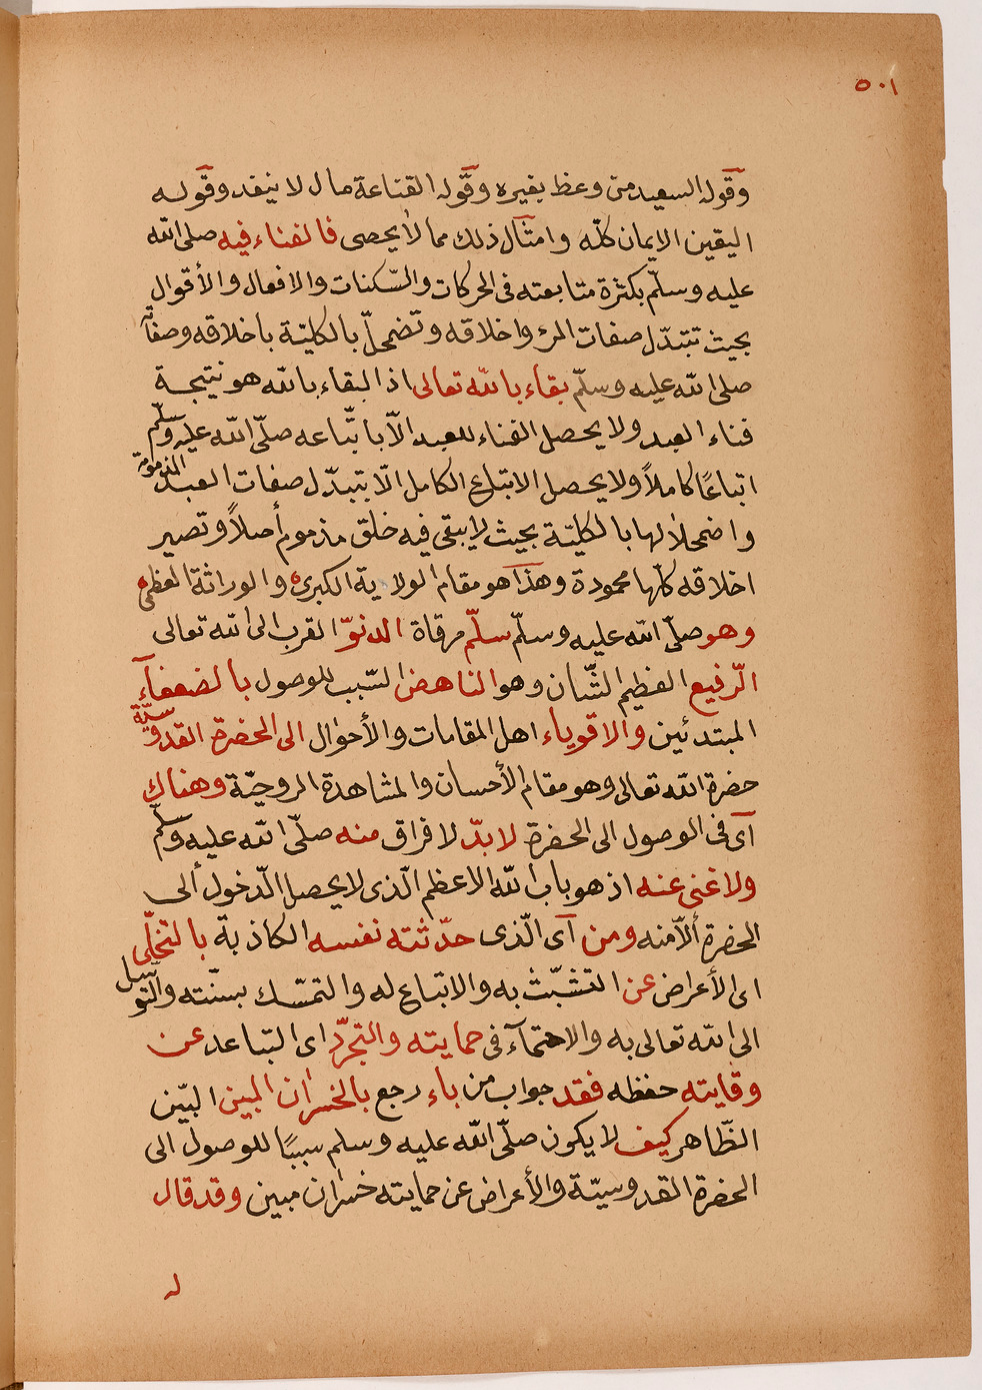 ٥٠١
وقوله السعيد من وعظ بغيره وقوله القناعة مال لا ينفد وقوله
اليقين الايمان كلّه وامثال ذلك مما لا يحصى فالفناء فيه صلى الله
عليه وسلّم بكثرة متابعته فى الحركات والسّكنات والافعال والأقوال
بحيث تتبدّل صفات المرء واخلاقه وتضمحلّ بالكليّة باخلاقه وصفاته
صلى الله عليه وسلّم بقاء بالله تعالى اذ البقاء بالله هو نتيجة
فناء العبد ولا يحصل الفناء للعبد الاّ باتّباعه صلّى الله عليه وسلّم
اتباعًا كاملاً ولا يحصل الاتباع الكامل الّا بتبدّل صفات العبد المذمومة
واضمحلالها بالكليّة بحيث لا يبقى فيه خلق مذموم أصلاً وتصير
اخلاقه كلّها محمودة وهذا هو مقام الولاية الكبرى والوراثة العظمى
وهو صلّى الله عليه وسلّم سلّم مرقاة الدنوّ القرب الى الله تعالى
الرّفيع العظيم الشّان وهو الناهض السّبب للوصول بالضعفآء
المبتدئين والاقوياء اهل المقامات والأحوال الى الحضرة القدوسيّة
حضرة الله تعالى وهو مقام الأحسان والمشاهدة الروحيّة وهناك
آى فى الوصول الى الحضرة لا بدّ لا فراق منه صلّى الله عليه وسلّم
ولا غنى عنه اذ هو باب الله الاعظم الّذى لا يحصل الدّخول ألى
الحضرة ألاّ منه ومن آى الّذى حدّثته نفسه الكاذبة بالتخلّى
اى الأعراض عن التشبّث به والاتباع له والتمسّك بسنّته والتوسّل
الى الله تعالى به والاحتمآء فى حمايته والتجرّد اى التباعد عن
وقايته حفظه فقد جواب من باء رجع بالخسران المبين البيّن
الظّاهر كيف لا يكون صلّى الله عليه وسلم سببًا للوصول الى
الحضرة القدوسيّة والأعراض عن حمايته خسران مبين وقد قال